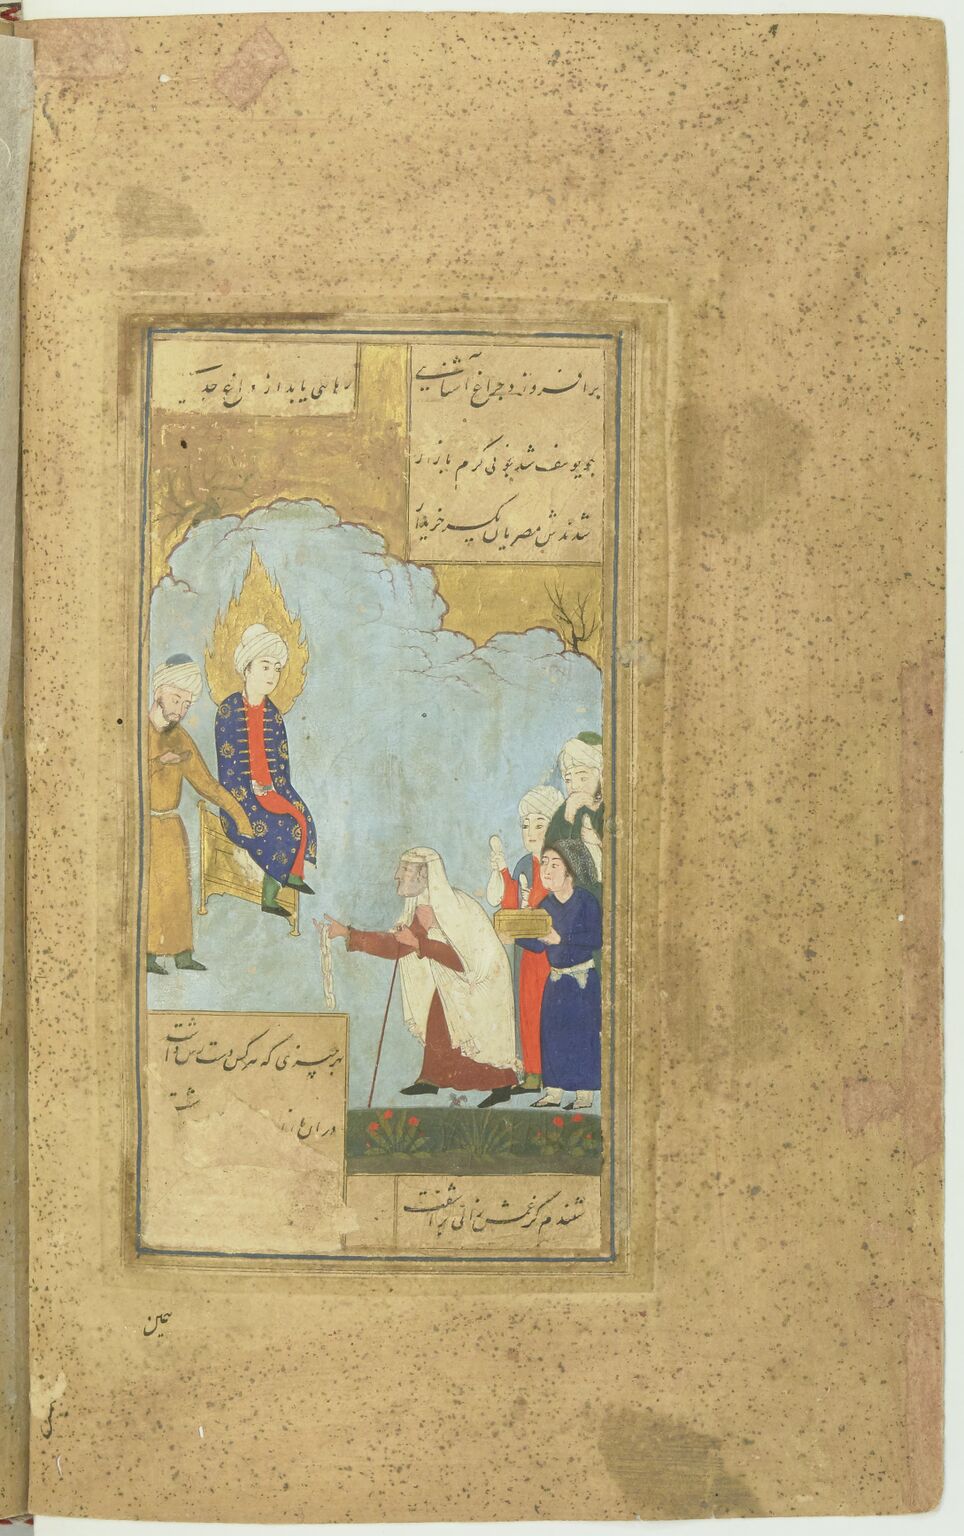 برافروزد چراغ آشنایی
رهایی یابد از داغ جدایی
چو یوسف شد بخوبی گرم بازار
شدندش مصریان یکسر خریدار
بهر چیزی که هر کس دست رس داشت
در آن
شنیدم کز غمش زالی برآشفت
همین